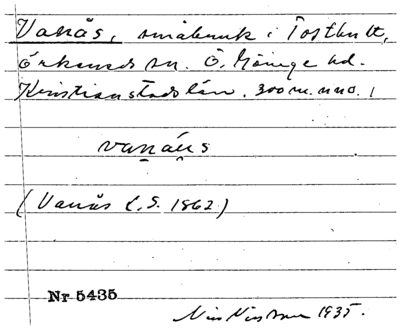 Vanås, småbruk i Tosthult,
Örkeneds sn. Ö. Göinge hd.
Kristianstads län. 300 m. nno.
vanås
(Vanås L.S. 1862)
Nr 5435
1935.